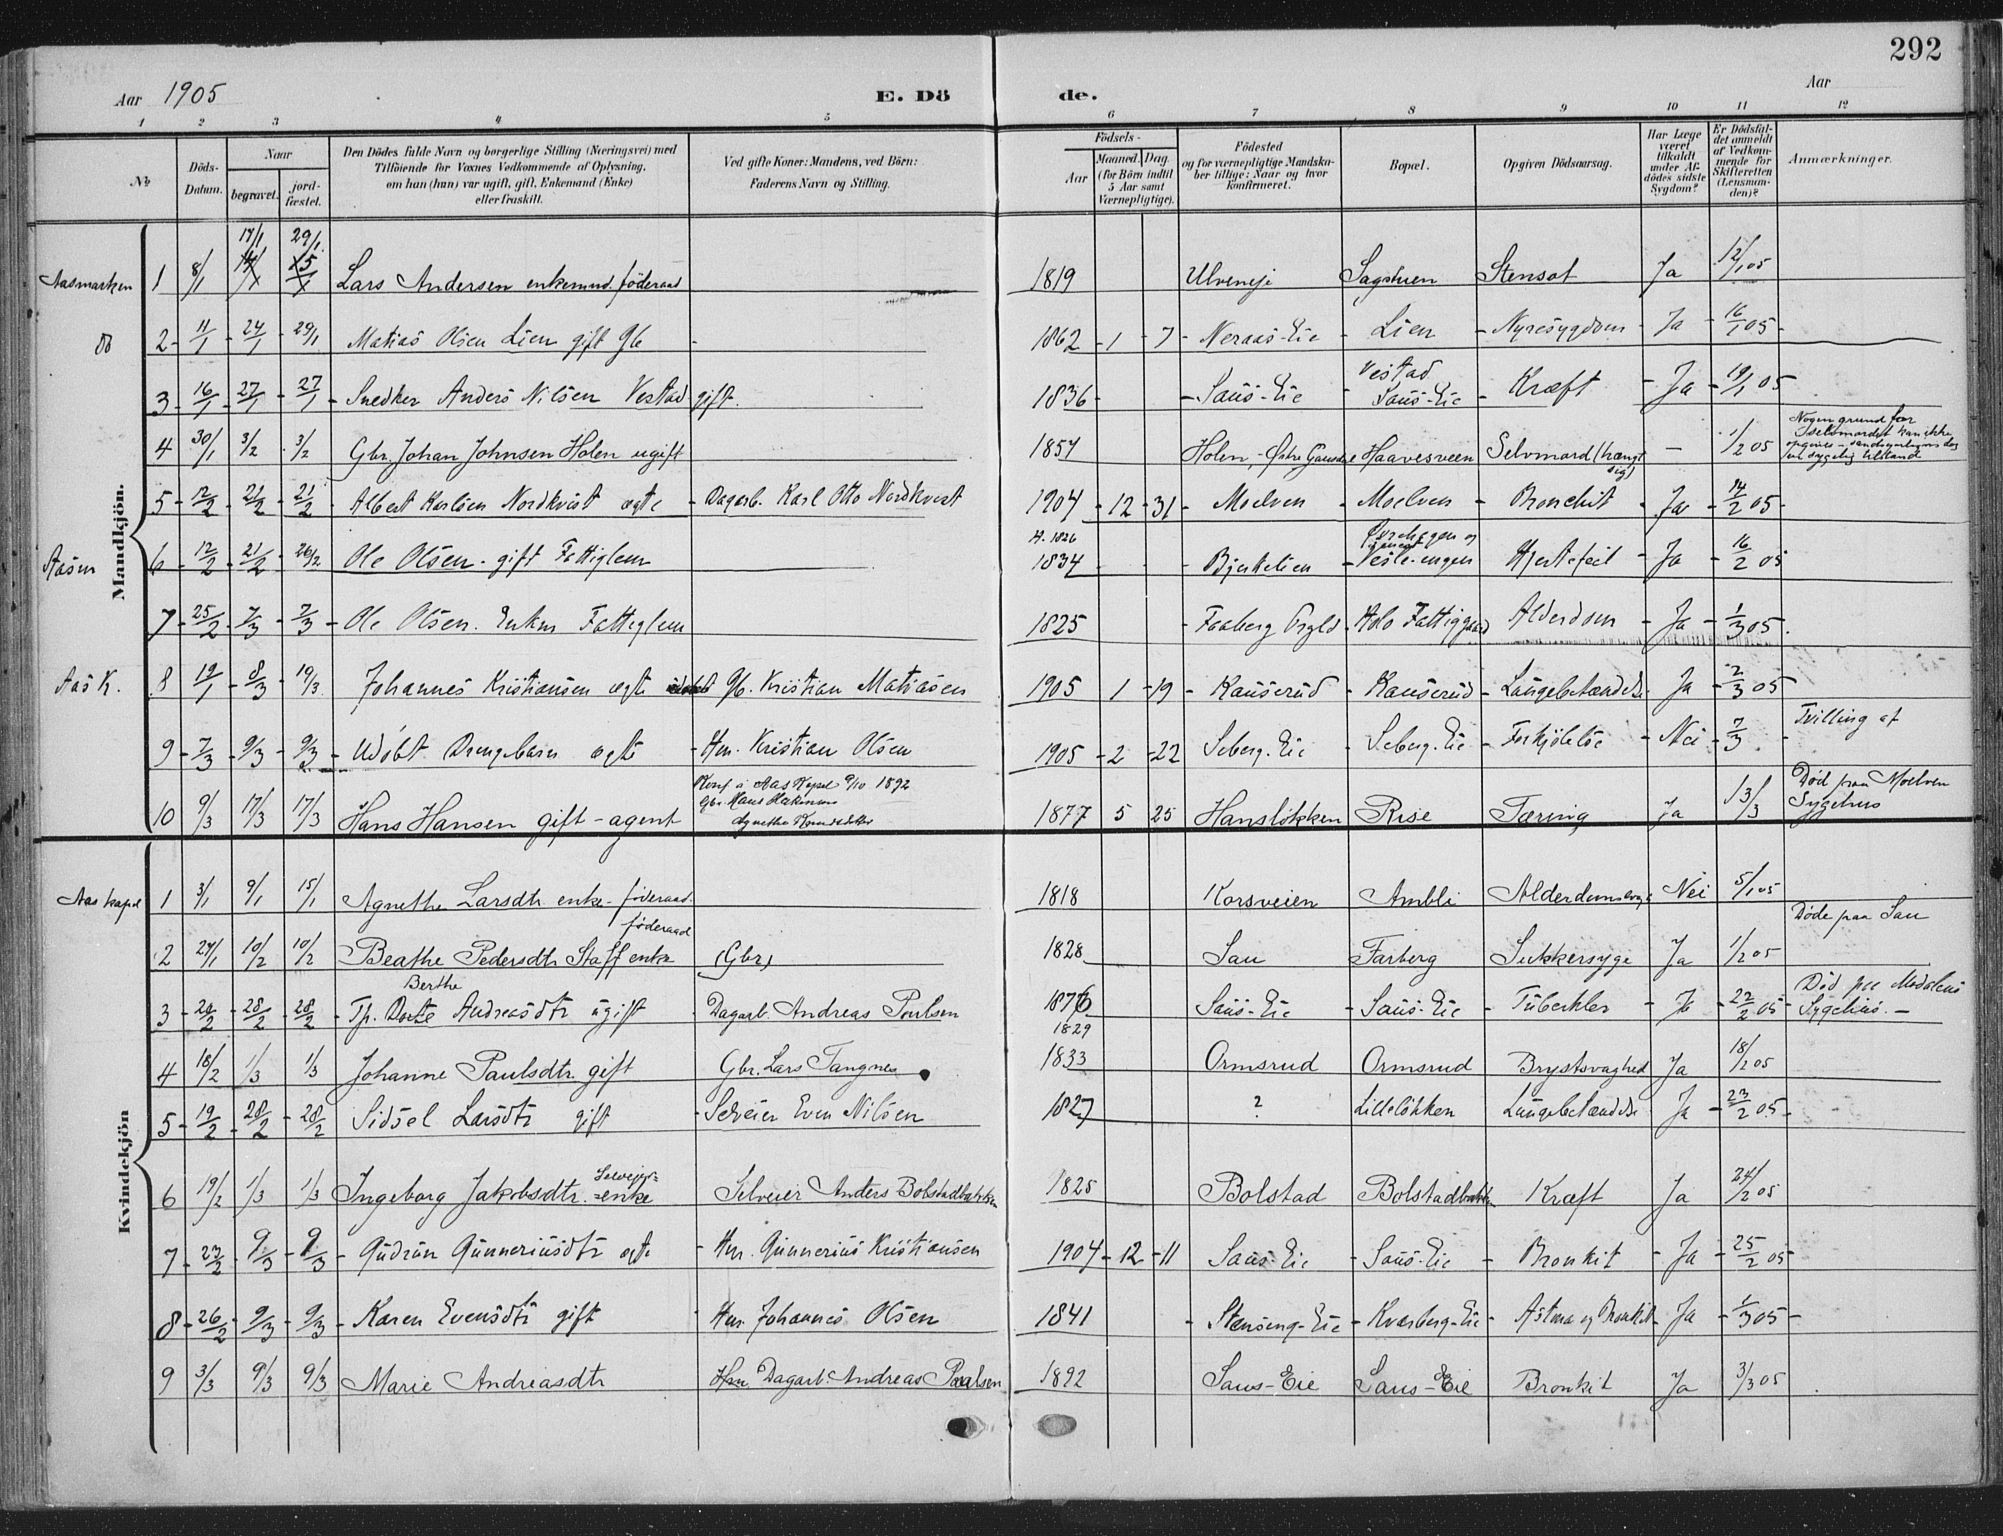 292
Aar 1905 E. Dö de. Aar
1 2 3 4 5 6 7 8 9 10 11 12
No. Döds-Datum. Naar begravet. jordfæstet. Den Dödes fulde Navn og borgerlige Stilling (Næringsvei) med Tilföiende for Voxnes Vedkommende af Oplysning, om han (hun) var ugift, gift, Enkemand (Enke) eller fraskilt. Ved gifte Koner: Mandens, ved Börn: Faderens Navn og Stilling. Födsels- Aar Maaned. Dag. (for Börn indtil 5 Aar samt Værnepligtige). Födested og for værnepligtige Mandskaber tillige: Naar og hvor Konfirmeret. Bopæl. Opgiven Dödsaarsag. Har Læge været tilkaldt under Afdödes sidste Sygdom? Er Dödsfaldet anmeldt af Vedkommende for Skifteretten (Lensmanden)? Anmærkninger.
Mandkjön.
17/1 29/1
Aasmarken 1 8/1 Lars Andersen enkemnd. föderaad 1819 Ulveneje Sagstuen Stensot Ja 12/1 05
do 2 - 11/1 - 24/1 - 29/1 Matias Olsen Lien gift Gb - 1862 - 1 - 7 - Neraas-Eie - Lien - Nyresygdom - Ja - 16/1 05 -
3 - 16/1 - 27/1 - 27/1 - Snedker Anders Nilsen Vestad gift. 1836 - - Saus-Eie - Vestad Saus-Eie - Kræft - Ja - 19/1 05
4 30/1 3/2 3/2 Gbr. Johan Johnsen Holen ugift 1857 Holen, Østre Gausdal Haavesveen Selvmord (hængt sig) - 1/2 05 Nogen grund for Selvmordet kan ikke opgives - sandsynligvis sygelig tilstand
5 - 12/2 - 21/2 - 21/2 - Albert Karlsen Nordkvist ægte - Dagarb. Karl Otto Nordkvist 1904 - 12 - 31 - Moelven - Moelven - Bronchit - Ja - 14/2 05 -
Aasm 6 - 12/2 - 21/2 - 26/2 Ole Olsen - gift Fattiglem 1834 - - Bjerkelien - Vesle-engen Hjertefeil - Ja - 16/2 05
7 - 25/2 - 7/3 - 7/3 - Ole Olsen. Enkm Fattiglem 1825 - Faaberg Prgld - Holo Fattiggaard Alderdom - Ja - 1/3 05 .
Aas K. 8 19/1 - 8/3 - 19/3 Johannes Kristiansen ægte Gb. Kristian Matiasen 1905 1 - 19 - Kauserud - Kauserud - Lungebetændelse Ja - 2/3 05
9 - 7/3 - 9/3 - 9/3 - Udøbt Drengebarn ægte - Hm. Kristian Olsen 1905 - 2 - 22 Seberg-Eie - Seberg-Eie - Forkjølelse - Nei - 7/3 - Tvilling af
10 9/3 17/3 17/3 Hans Hansen gift - agent Konf i Aas Kapel 9/10 1892 Gbr. Hans 1877 5 25 Hansløkken Rise Tæring Ja 13/3 Død paa Moelven Sygehus
Kvindekjön
Aas kapel 1 3/1 9/1 15/1 Agnethe Larsdtr enke - föderaad. 1818 Korsveien Ambli Nei 5/1 05
2 27/1 10/2 10/2 Beathe Pedersdtr Staff enke föderaad (Gbr) 1828 Sau Farberg Sukkersyge Ja 1/2 05 Døde paa Sau
3 - 20/2 - 28/2 - 28/2 - Tp. Dorte Berthe Andreasdtr ugift - Dagarb. Andreas Poulsen 1876 Saus-Eie - Saus-Eie - Tuberkler - Ja - 22/2 05 - Død paa Sygehus. -
1829
4 18/2 1/3 1/3 Johanne Paulsdtr. gift Gbr. Lars Tangnes 1833 Ormsrud Ormsrud Brystsvaghed Ja 18/2 05
5 - 19/2 - 28/2 - 28/2 - Sidsel Larsdtr gift - Selveier Even Nilsen 1827 ? Lilleløkken Lungebetændelse Ja - 23/2 05 -
6 19/2 1/3 1/3 Ingeborg Jakobsdtr. Selvejer-enke Selveier Anders Bolstadbakken 1825 Bolstad Bolstadbakken Kræft Ja 24/2 05
7 - 23/2 - 9/3 - 9/3 - Gudrun Gunneriusdtr ægte - Hm. Gunnerius Kristiansen 1904 - 12 - 11 Saus-Eie - Saus-Eie - Bronkit - Ja - 25/2 05 -
8 - 26/2 - 9/3 - 9/3 - Karen Evensdtr gift - Hm. Johannes Olsen 1841 - Stenseng-Eie - Kvarberg-Eie - Astma og Bronkit - Ja - 1/3 05 -
9 3/3 9/3 9/3 Marie Andreasdtr Dagarb. Andreas Paalsen 1892 Saus-Eie Saus-Eie Bronkit Ja 3/3 05